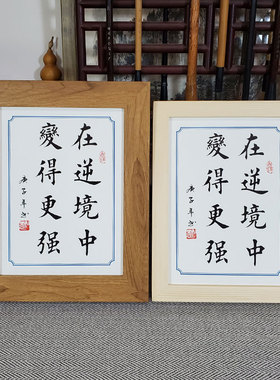 在逆境中
變得更强
庚子年
在逆境中
變得更强
庚子年